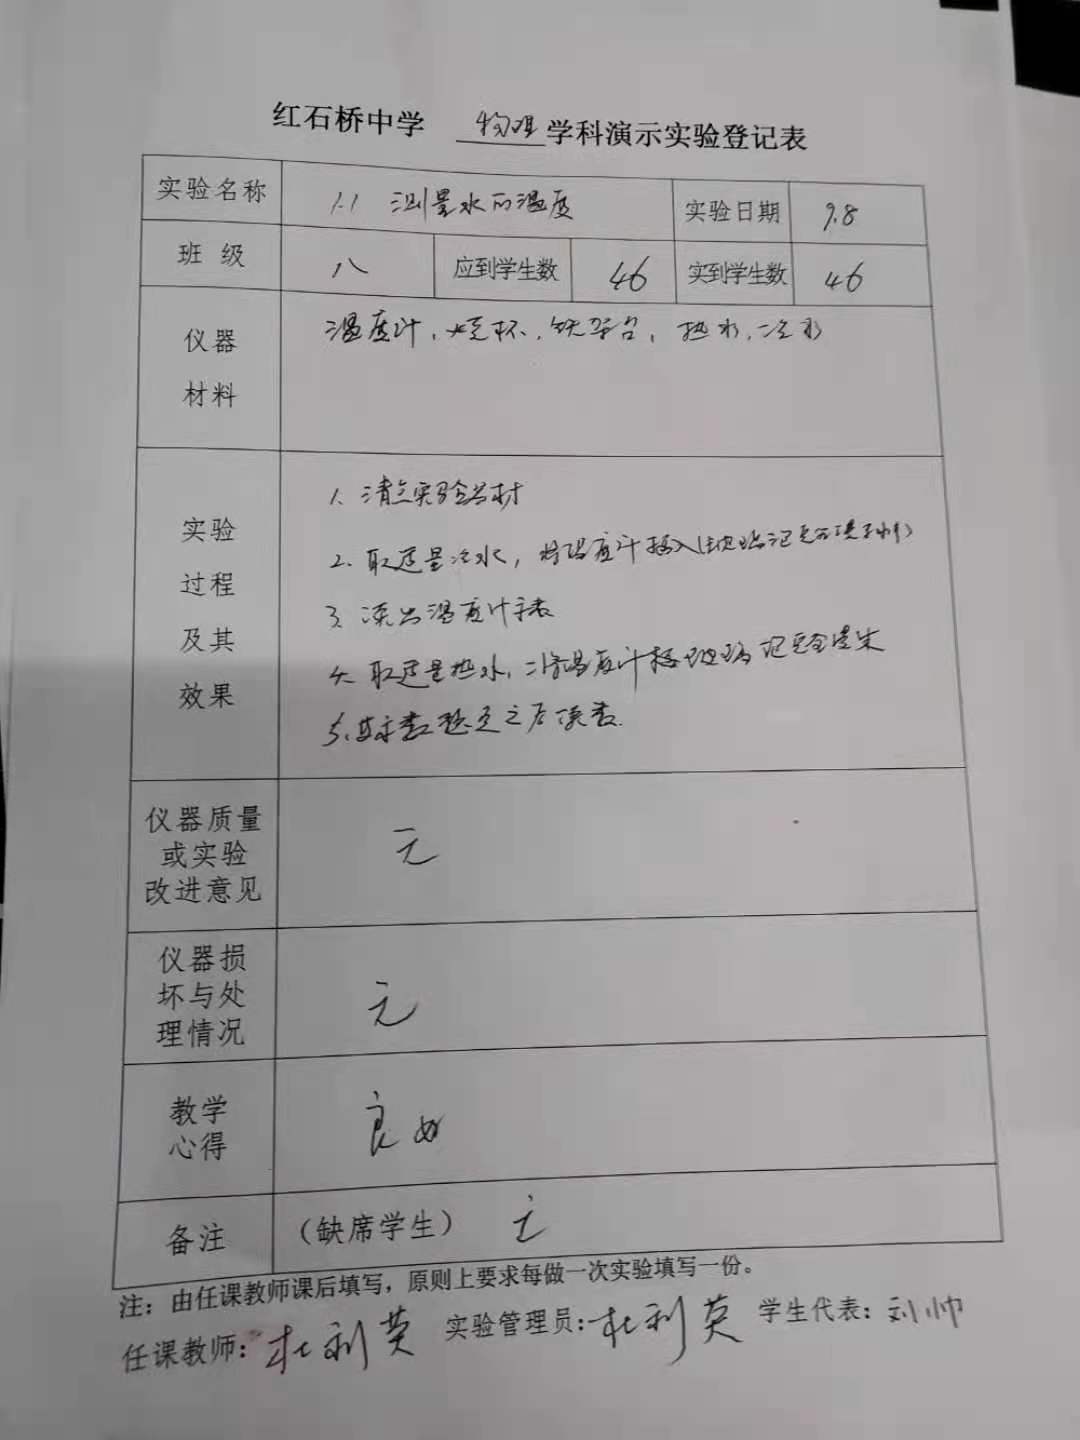 红石桥中学 物理 学科演示实验登记表
实验名称 1.1 测量水的温度 实验日期 9.8
班 级 八 应到学生数 46 实到学生数 46
仪器
材料
温度计，烧杯，铁架台，热水，冷水
实验
过程
及其
效果
1. 清点实验器材
2. 取适量冷水，将温度计插入
3. 读出温度计示数
4. 取适量热水，将温度计
5. 示数稳定之后读数.
仪器质量
或实验
改进意见
无
仪器损
坏与处
理情况
无
教学
心得
良好
备注 （缺席学生） 无
注：由任课教师课后填写，原则上要求每做一次实验填写一份。
任课教师：杜利英 实验管理员：杜利英 学生代表：刘帅